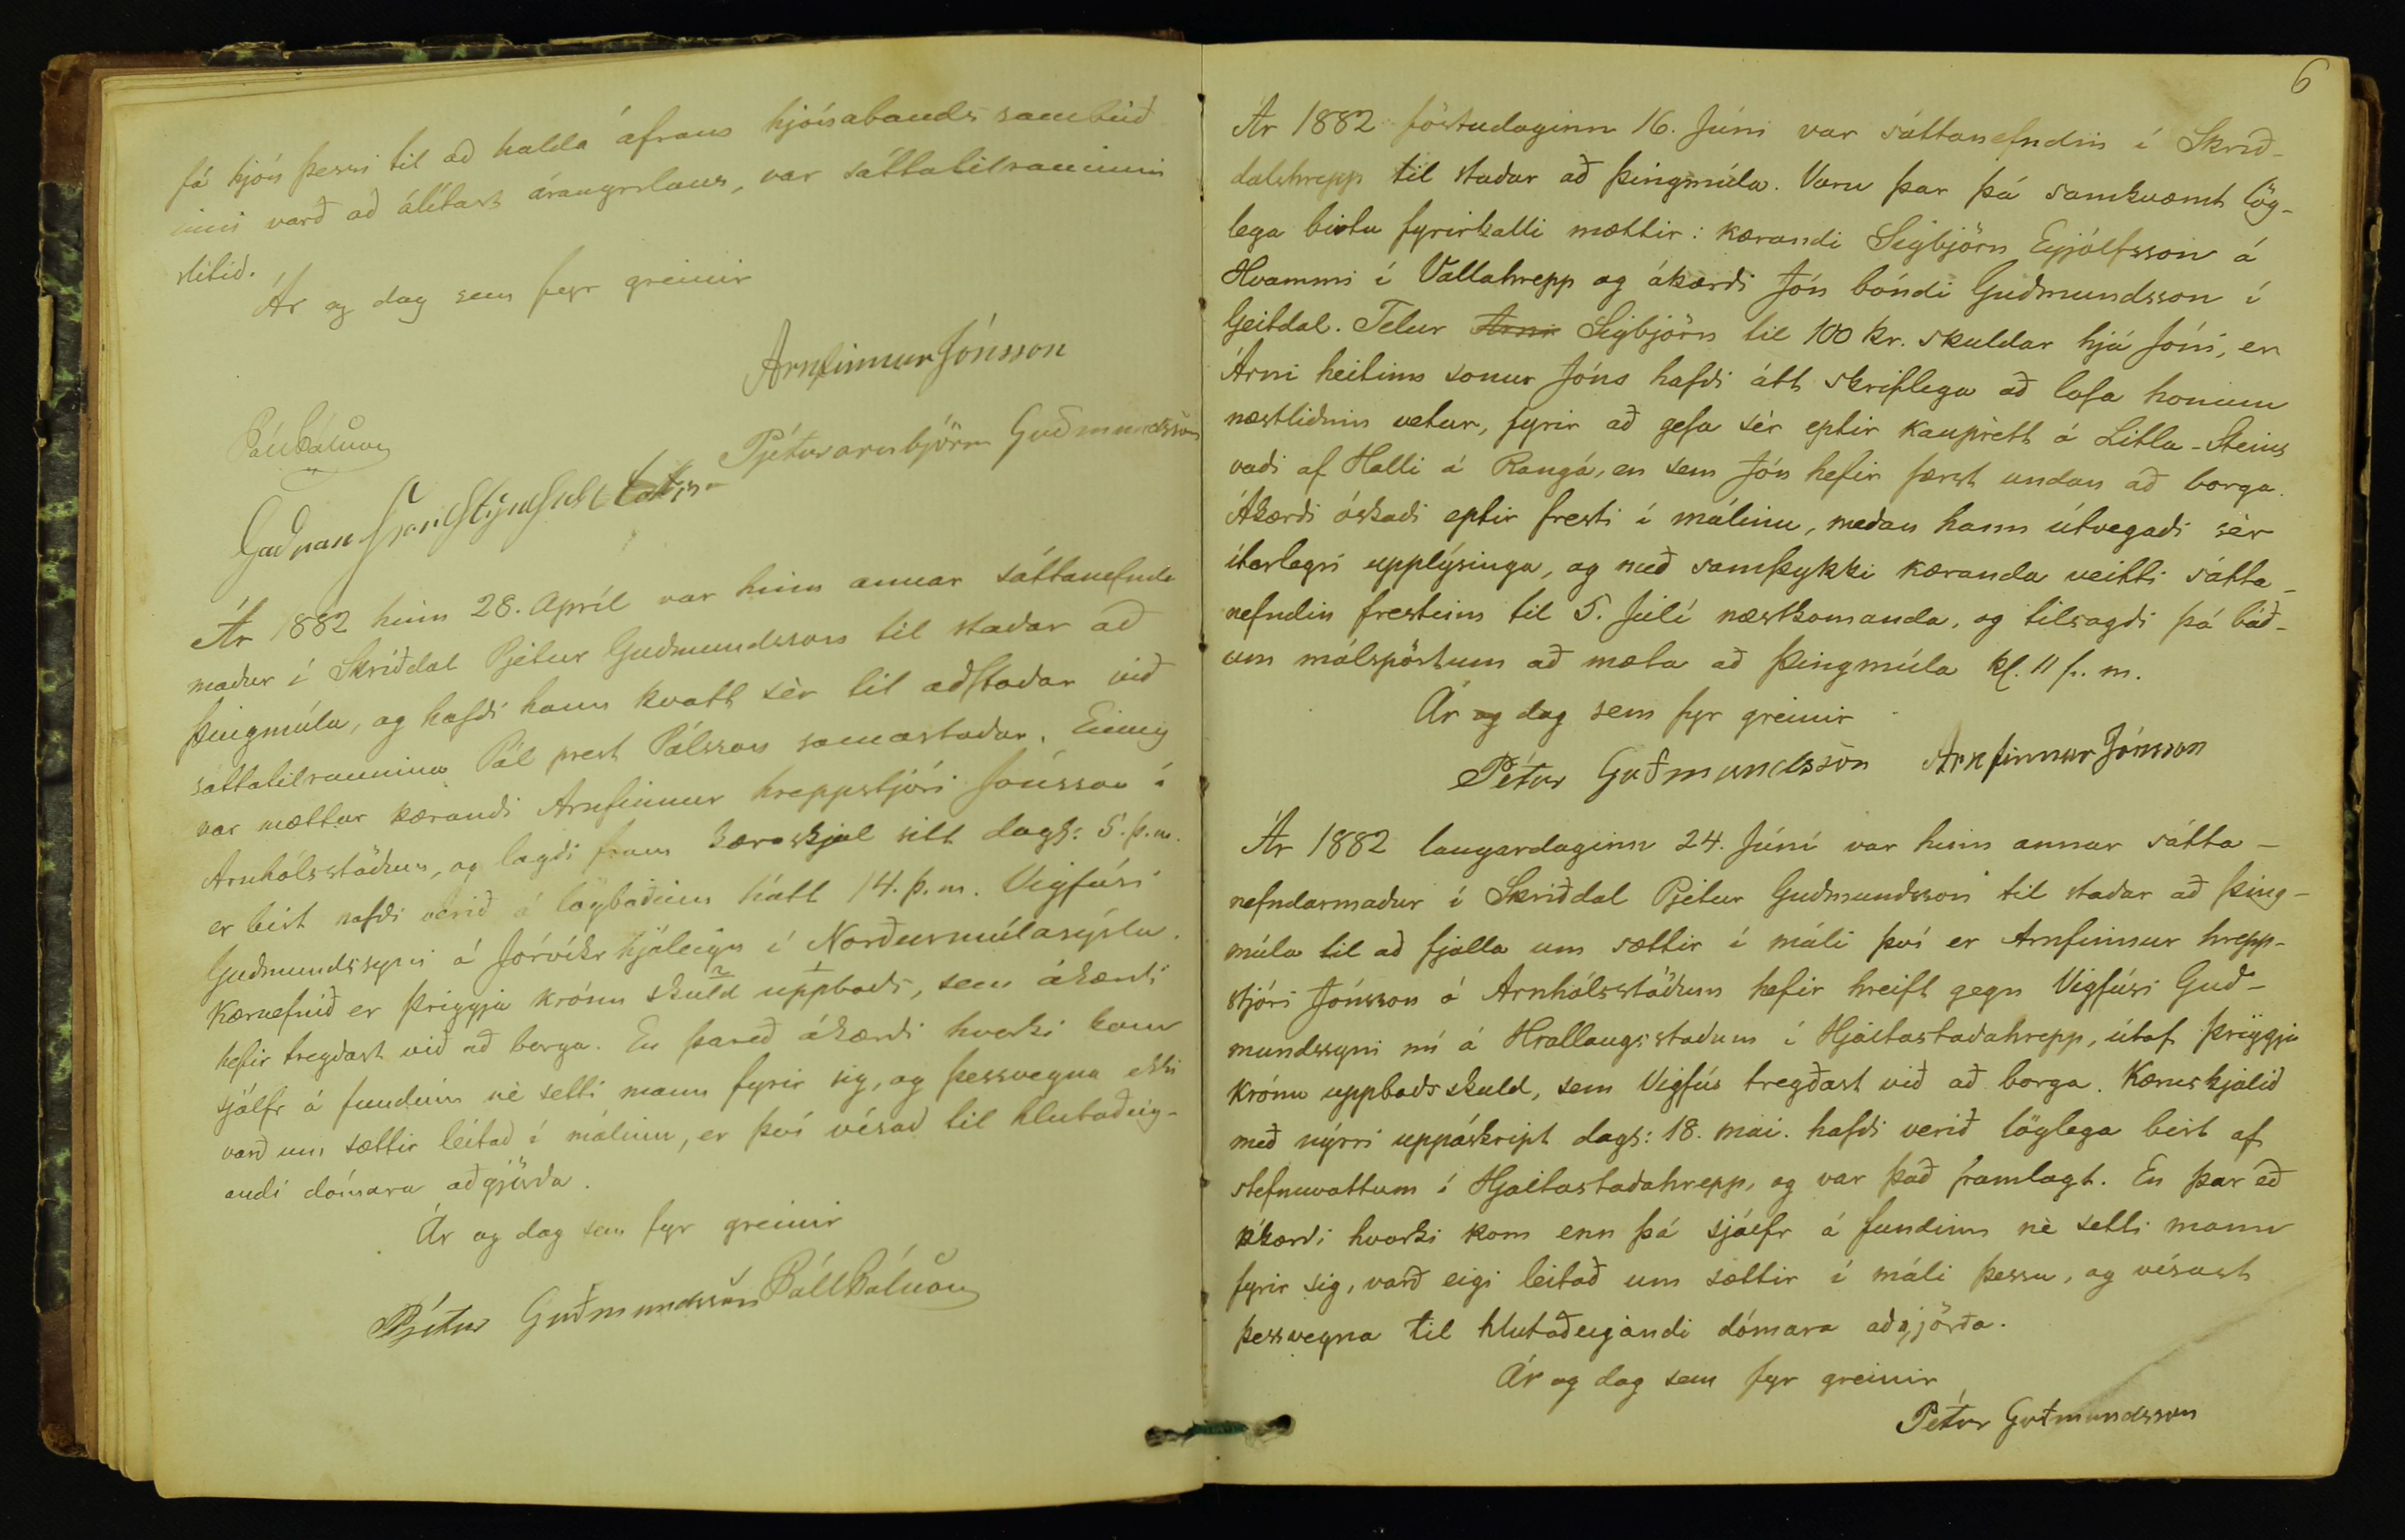 fá hjón þessi til að halda áfram hjónabands sambúð
inni varð að álítast árangrslaus, var sáttatilrauninni
slitið.
Ár og dag sem fyr greinir
Arnfinnur Jónsson
Páll Pálsson
Pjeturarnbjörn Guðmundsson
Guðrún
Ár 1882 hinn 28. Apríl var hinn annar sáttanefnda
maður í Skriðdal Pjetur Guðmundsson til staðar að
Þingmúla, og hafði hann kvatt sèr til aðstoðar við
sáttatilraunina Pál prest Pálsson samastaðar. Einnig
var mættur kærandi Arnfinnur hreppstjóri Jónsson á
Arnhólsstöðum, og lagði fram kæruskjal sitt dags: 5. þ.m.
er birt hafði verið á lögboðinn hátt 14. þ.m. Vigfúsi
Guðmundssyni á Jórvíkrhjáleigu í Norðurmúlasýslu.
Kæruefnið er þriggja krónu skuld uppboðs, sem ákærði
hefir tregðast við að borga. En þareð ákærði hvorki kom
sjálfr á fundinn nè setti mann fyrir sig, og þessvegna ekki
varð um sættir leitað í málinu, er því vísað til hlutaðeig-
andi dómara aðgjörða.
Ár og dag sem fyr greinir
Pjetur Guðmundsson Páll Pálsson
6
Ár 1882 föstudaginn 16. Júni var sáttanefndin í Skrið-
dalshrepp til staðar að Þingmúla. Voru þar þá samkvæmt lög-
lega birtu fyrirkalli mættir: kærandi Sigbjörn Eyjólfsson á
Hvammi í Vallahrepp og ákærði Jón bóndi Guðmundsson í
Geitdal. Telur Arni Sigbjörn til 100 kr. skuldar hjá Jóni, er
Árni heitinn sonur Jóns hafði átt skriflega að lofa honum
næstliðinn vetur, fyrir að gefa sèr eptir kauprètt á Litla-Steins
vaði af Halli á Rangá, en sem Jón hefir færst undan að borga.
Ákærði óskaði eptir fresti í málinu, meðan hann útvegaði sèr
ítarlegri upplýsinga, og með samþykki kæranda veitti sátta
nefndin frestinn til 5. Júlí næstkomanda, og tilsagði þá báð-
um málspörtum að mæta að Þingmúla kl. 11 f. m.
Ár og dag sem fyr greinir
Pétur Guðmundsson Arnfinnur Jónsson
Ár 1882 laugardaginn 24. Júní var hinn annar sátta-
nefndarmaður í Skriðdal Pjetur Guðmundsson til staðar að Þing-
múla til að fjalla um sættir í máli því er Arnfinnur hrepp-
stjóri Jónsson á Arnhólsstöðum hefir hreift gegn Vigfúsi Guð-
mundssyni nú á Hrallaugsstöðum í Hjaltastaðahrepp, útaf þriggja
krónu uppboðsskuld, sem Vigfús tregðast við að borga. Kæruskjalið
með nýrri uppáskript dags: 18. mai. hafði verið löglega birt af
stefnuvottum í Hjaltastaðahrepp, og var það framlagt. En þar eð
ákærði hvorki kom enn þá sjálfr á fundinn nè setti mann
fyrir sig, varð eigi leitað um sættir í máli þessu, og vísast
þessvegna til hlutaðeigandi dómara aðgjörða.
Ár og dag sem fyr greinir
Pétur Guðmundsson